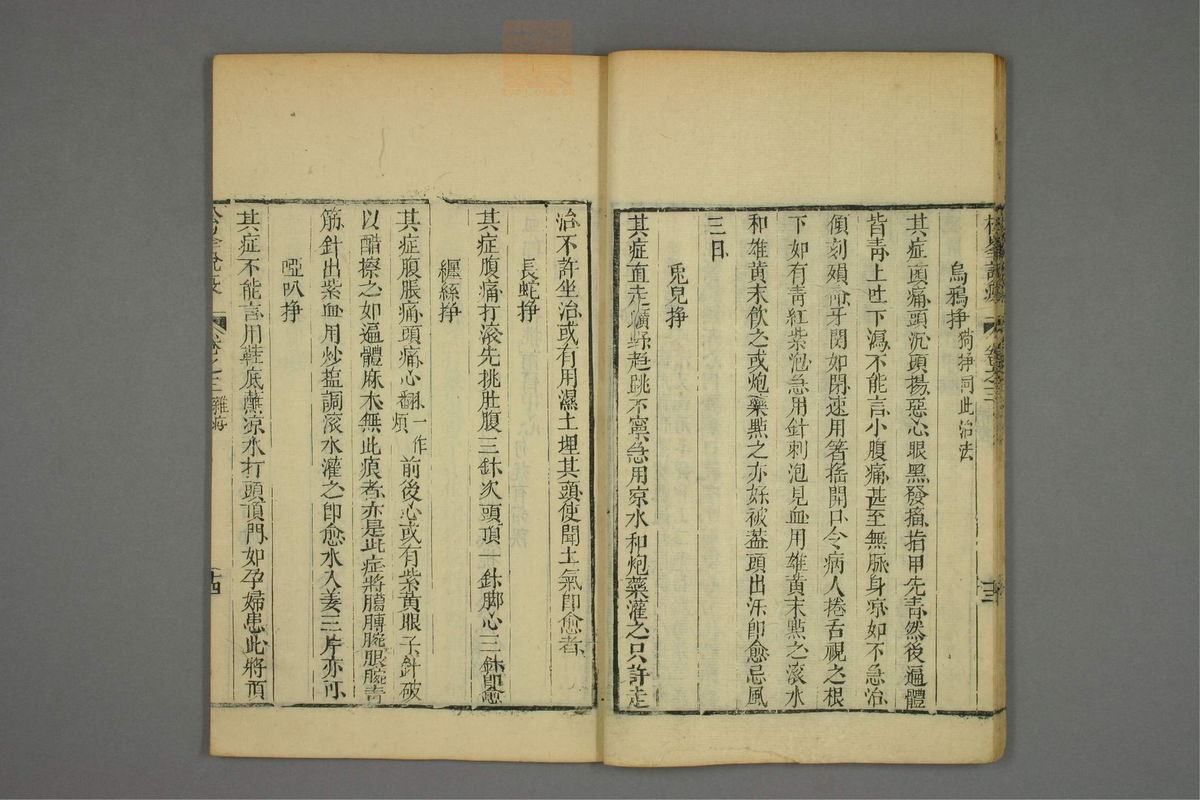 烏鴉掙 狗掙同此治法
其症面痛頭沉頭揚惡心眼黑發搐指甲先青然後遍體
皆青上吐下瀉不能言小腹痛甚至無脈身凉如不急治
傾刻殞命牙関如閉速用箸搖開口令病人捲舌視之根
下如有青紅紫泡急用針刺泡見血用雄黃末點之滚水
和雄黃末飲之或炮藥點之亦好被蓋頭出汗即愈忌風
三日
兎兒掙
其症直走曠野趒跳不寧急用凉水和炮藥灌之只許走
治不許坐治或有用濕土埋其頭使聞土氣即愈者
長蛇掙
其症腹痛打滾先挑肚腹三針次頭頂一針脚心三針即愈
纒絲掙
其症腹脹痛頭痛心翻一作煩前後心或有紫黃眼子針破
以醋擦之如遍體麻木無此痕者亦是此症將胳膊腕腿腕青
筋針出紫血用炒塩調滚水灌之即愈水入姜三片亦可
啞叭掙
其症不能言用鞋底蘸凉水打頭頂門如孕婦患此將頂